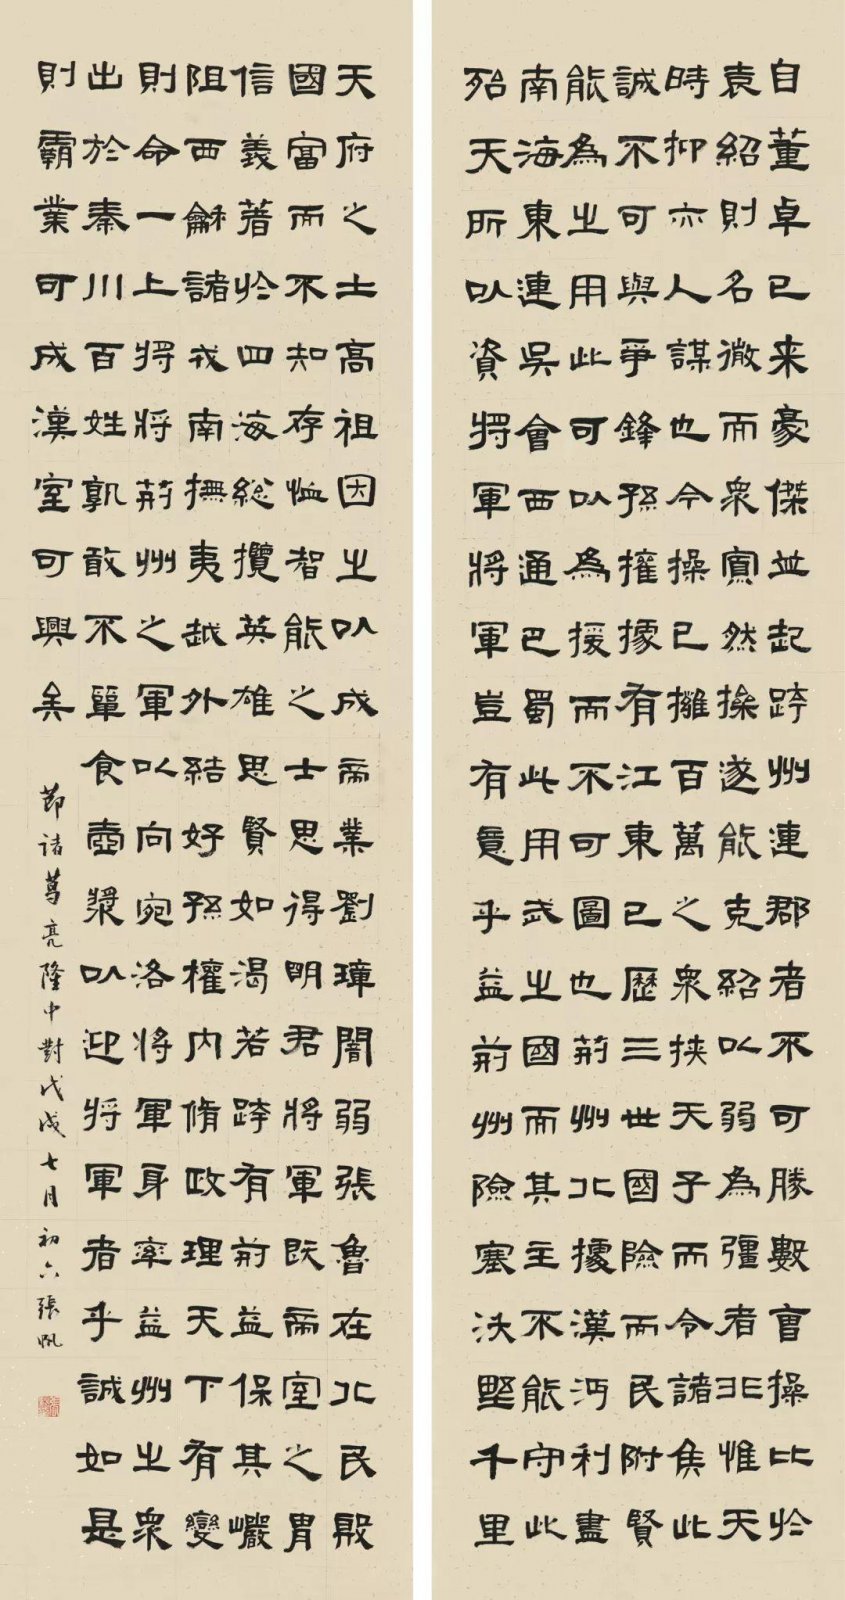 自董卓已来豪傑並起跨州連郡者不可勝數曹操比於
袁紹則名微而衆寡然操遂能克紹以弱為彊者非惟天
時抑亦人謀也今操已擁百萬之衆挾天子而令諸侯此
誠不可與爭鋒孫權據有江東已歷三世國險而民附賢
能為之用此可以為援而不可圖也荊州北據漢沔利盡
南海東連吳會西通巴蜀此用武之國而其主不能守此
殆天所以資將軍將軍豈有意乎益荊州險塞沃野千里
天府之土高祖因之以成帝業劉璋闇弱張魯在北民殷
國富而不知存恤智能之士思得明君將軍既帝室之胄
信義著於四海總攬英雄思賢如渴若跨有荊益保其巖
阻西龢諸戎南撫夷越外結好孫權內脩政理天下有變
則命一上將將荊州之軍以向宛洛將軍身率益州之衆
出於秦川百姓孰敢不單食壺漿以迎將軍者乎誠如是
則霸業可成漢室可興矣
節諸葛亮隆中對戊戌七月初六張帆